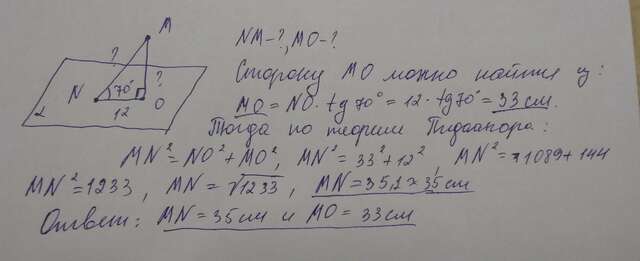 M
?
?
N
70°
12
O
α
NM-?, MO-?
Сторону MO можно найти из:
MO = NO · tg 70° = 12 · tg 70° = 33 см.
Тогда по теореме Пифагора:
MN² = NO² + MO², MN² = 33² + 12², MN² = 1089 + 144
MN² = 1233, MN = √1233, MN = 35,1 ≈ 35 см
Ответ: MN = 35 см и MO = 33 см